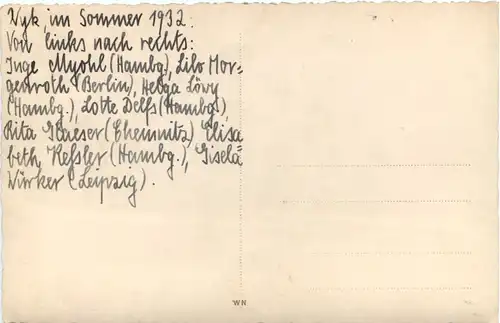 Wyk im Sommer 1932:
Von links nach rechts:
Inge Myohl (Hambg.), Lilo Mor-
genroth (Berlin), Helga Löwy
(Hambg.), Lotte Delfs (Hambg.),
Rita Glaeser (Chemnitz), Elisa
beth Keßler (Hambg.), Gisela
Würker (Leipzig).
WN